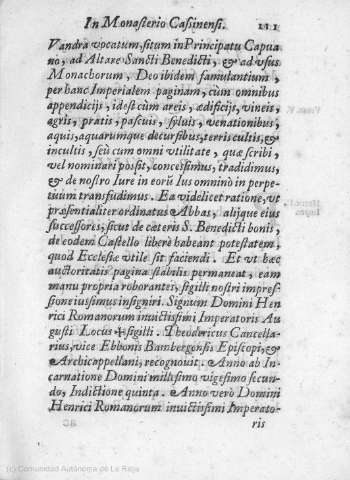 In Monasterio Casinensi. 111
Vandra vocatum, situm in Principatu Capua
no, ad Altare Sancti Benedicti, & ad vsus
Monachorum, Deo ibidem famulantium,
per hanc Imperialem paginam, cùm omnibus
appendicijs, idest cùm areis, ædificijs, vineis,
agris, pratis, pascuis, syluis, venationibus,
aquis, aquarumque decursibus, terris cultis, &
incultis, seù cum omni vtilitate, quæ scribi,
vel nominari possit, concessimus, tradidimus,
& de nostro Iure in eorũ Ius omninò in perpe
tuum transfudimus. Ea videlicet ratione, vt
præsentialiter ordinatus Abbas, alijque eius
successores, sicut de cæteris S. Benedicti bonis,
de eodem Castello liberè habeant potestatem,
quod Ecclesiæ vtile sit faciendi. Et vt hæc
auctoritatis pagina stabilis permaneat, eam
manu propria roborantes, sigilli nostri impres-
sione iussimus insigniri. Signum Domini Hen
rici Romanorum inuictissimi Imperatoris Au
gusti Locus ✠ sigilli. Theodericus Cancella-
rius, vice Ebbonis Bambergensis Episcopi, &
Archicappellani, recognouit. Anno ab In
carnatione Domini millesimo vigesimo secun-
do, Indictione quinta. Anno verò Domini
Henrici Romanorum inuictissimi Imperato-
ris
(c) Comunidad Autónoma de La Rioja